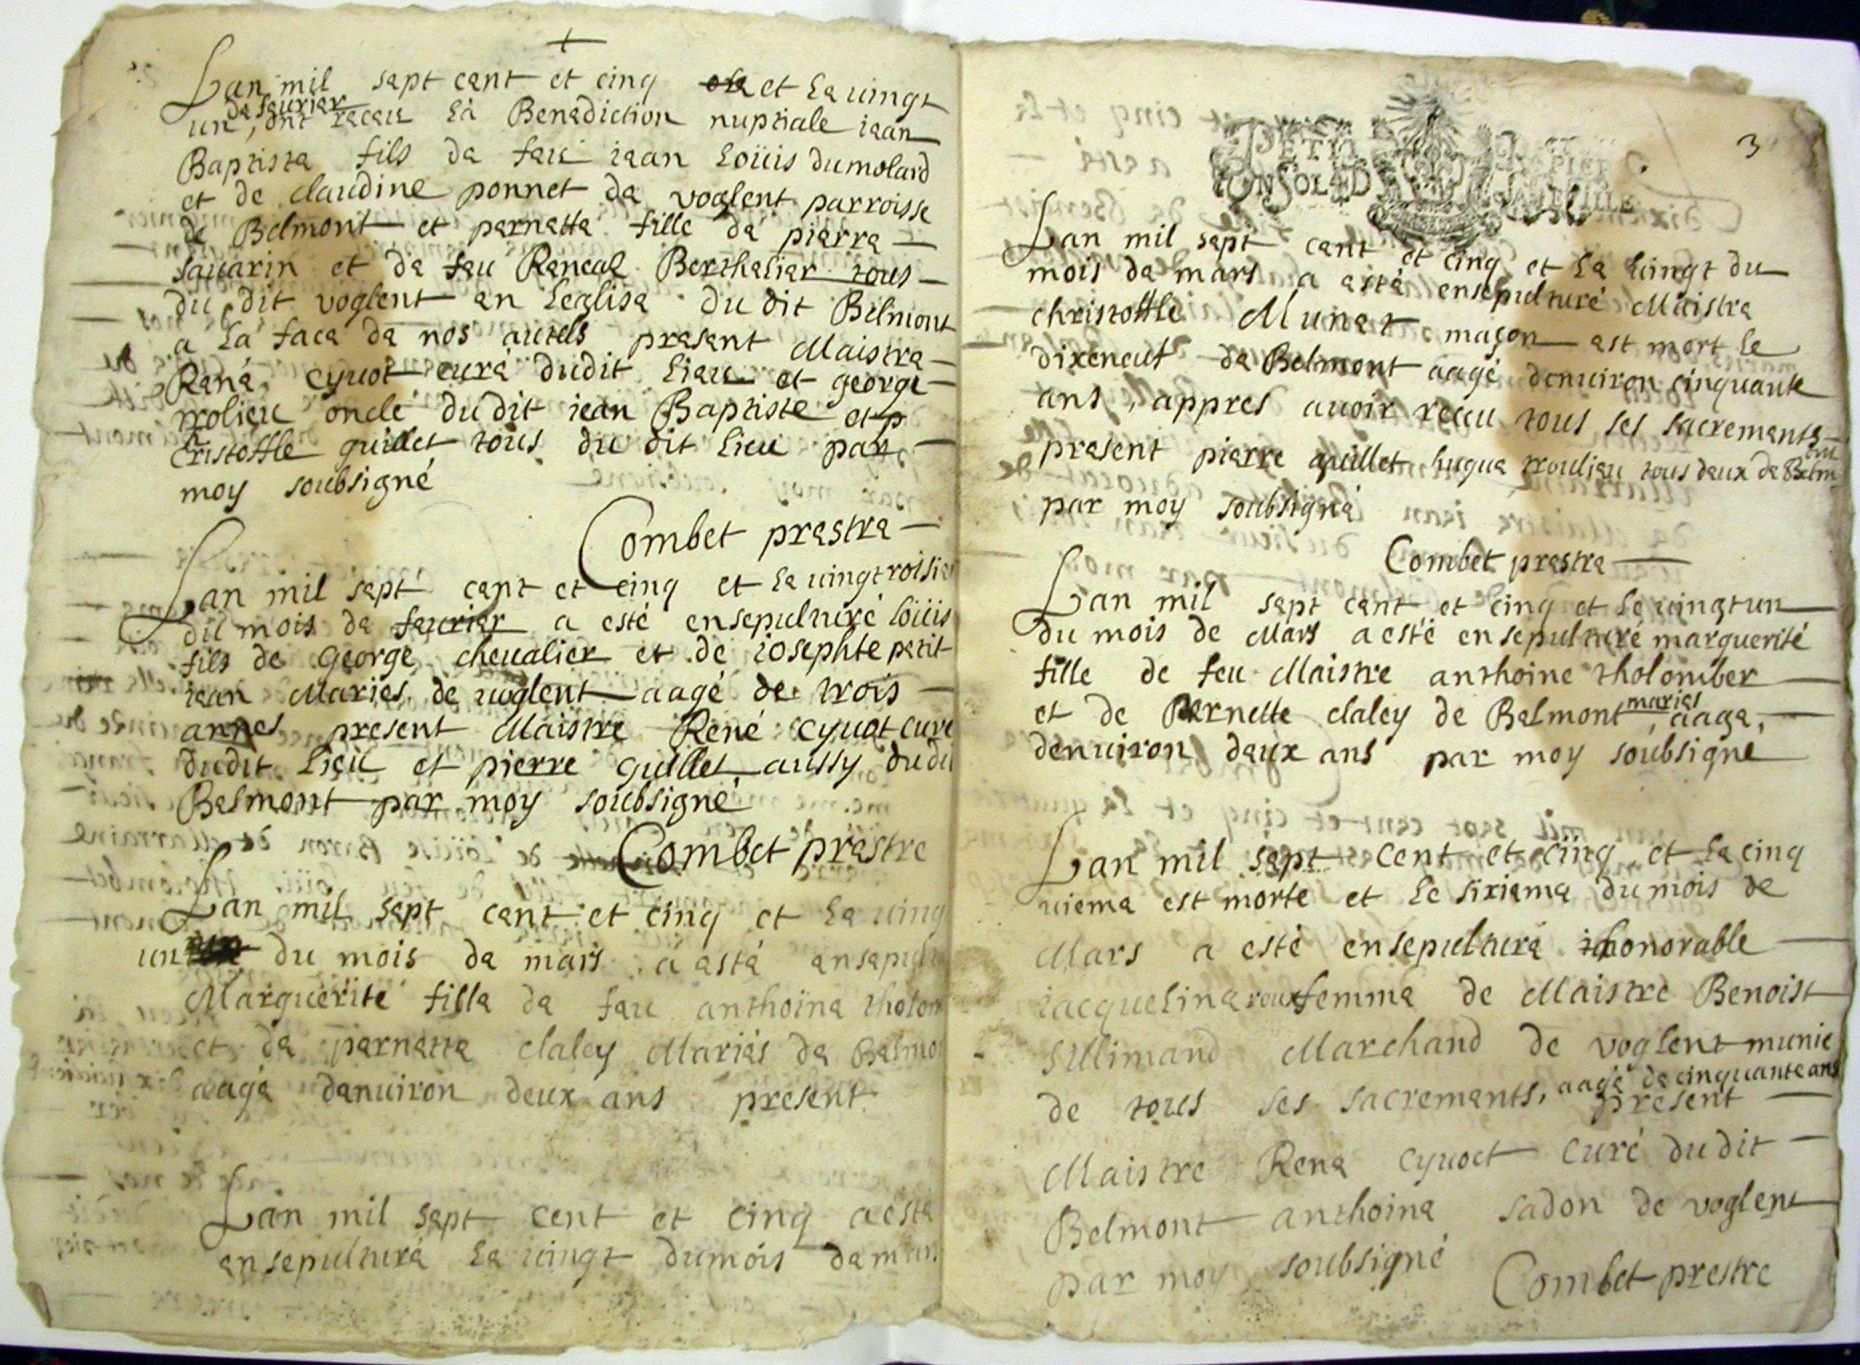 Lan mil sapt cant et cinq et la uingt
da faurier
un, ont racau la Benediction nuptiale iaan
Baptista fils da fau iaan loüis dumolard
et de claudine ponnet da voglent parroisse
de Belmont et parnatta fille da piarra
sauarin et da fau Berthaliar tous
du dit voglent an leglisa du dit Belmont
a la faca da nos autels prasant Maistra
Rana cyuot cura dudit liau et george
trolieu oncle dudit iean Baptiste et
cristoffle guillet tous du dit lieu par
moy soubsigné
Combet prastra
Lan mil sapt cant et cinq et la uingt roisie
du mois da faurier a esté ensepulturé loüis
fils de George cheualier et de iosephte petit
iean Maries de uoglent aagé de trois
annes present Maistre René cyuot curé
dudit lieu et pierre guillet aussy dudi
Belmont par moy soubsigné
Combet prastre
Lan mil sapt cant et cinq et la uing
un du mois da mars a astá ansapul
Marguerite filla da fau anthoina tholom
et da parnatta claley Mariás da Balmo
aagá danuiron deux ans present
Lan mil sapt cent et cinq a esta
ensepulturá la uingt du mois da mars
3
Lan mil sapt cant et cinq et la uingt du
mois da mars a astá ensepulturé Maistra
christoffle Munat maçon ast mort le
dixeneuf da Belmont aagé denuiron cinquante
ans, appres auoir receu tous ses sacremants
prasent piarre guillet huqua trouliau tous daux da Balm
par moy soubsigná
Combet prastra
Lan mil sapt cant et cinq et le uingt un
du mois de Mars a esté ensepulturé marguerité
fille de feu Maistre anthoine tholomber
mariás
et de Pernette claley de Belmont aaga,
denuiron daux ans par moy soubsigné
Lan mil sapt cent et cinq et la cinq
uiema est morte et le sixiama du mois de
Mars a esté ensepultura honorable
iacquelina roux femma de Maistre Benoist
sillimand Marchand de voglent munie
de tous ses sacremants, aagé da cinquante ans
present
Maistre Rena cyuoct curé dudit
Belmont anthoina sadon de voglent
par moy soubsigné
Combet prestre